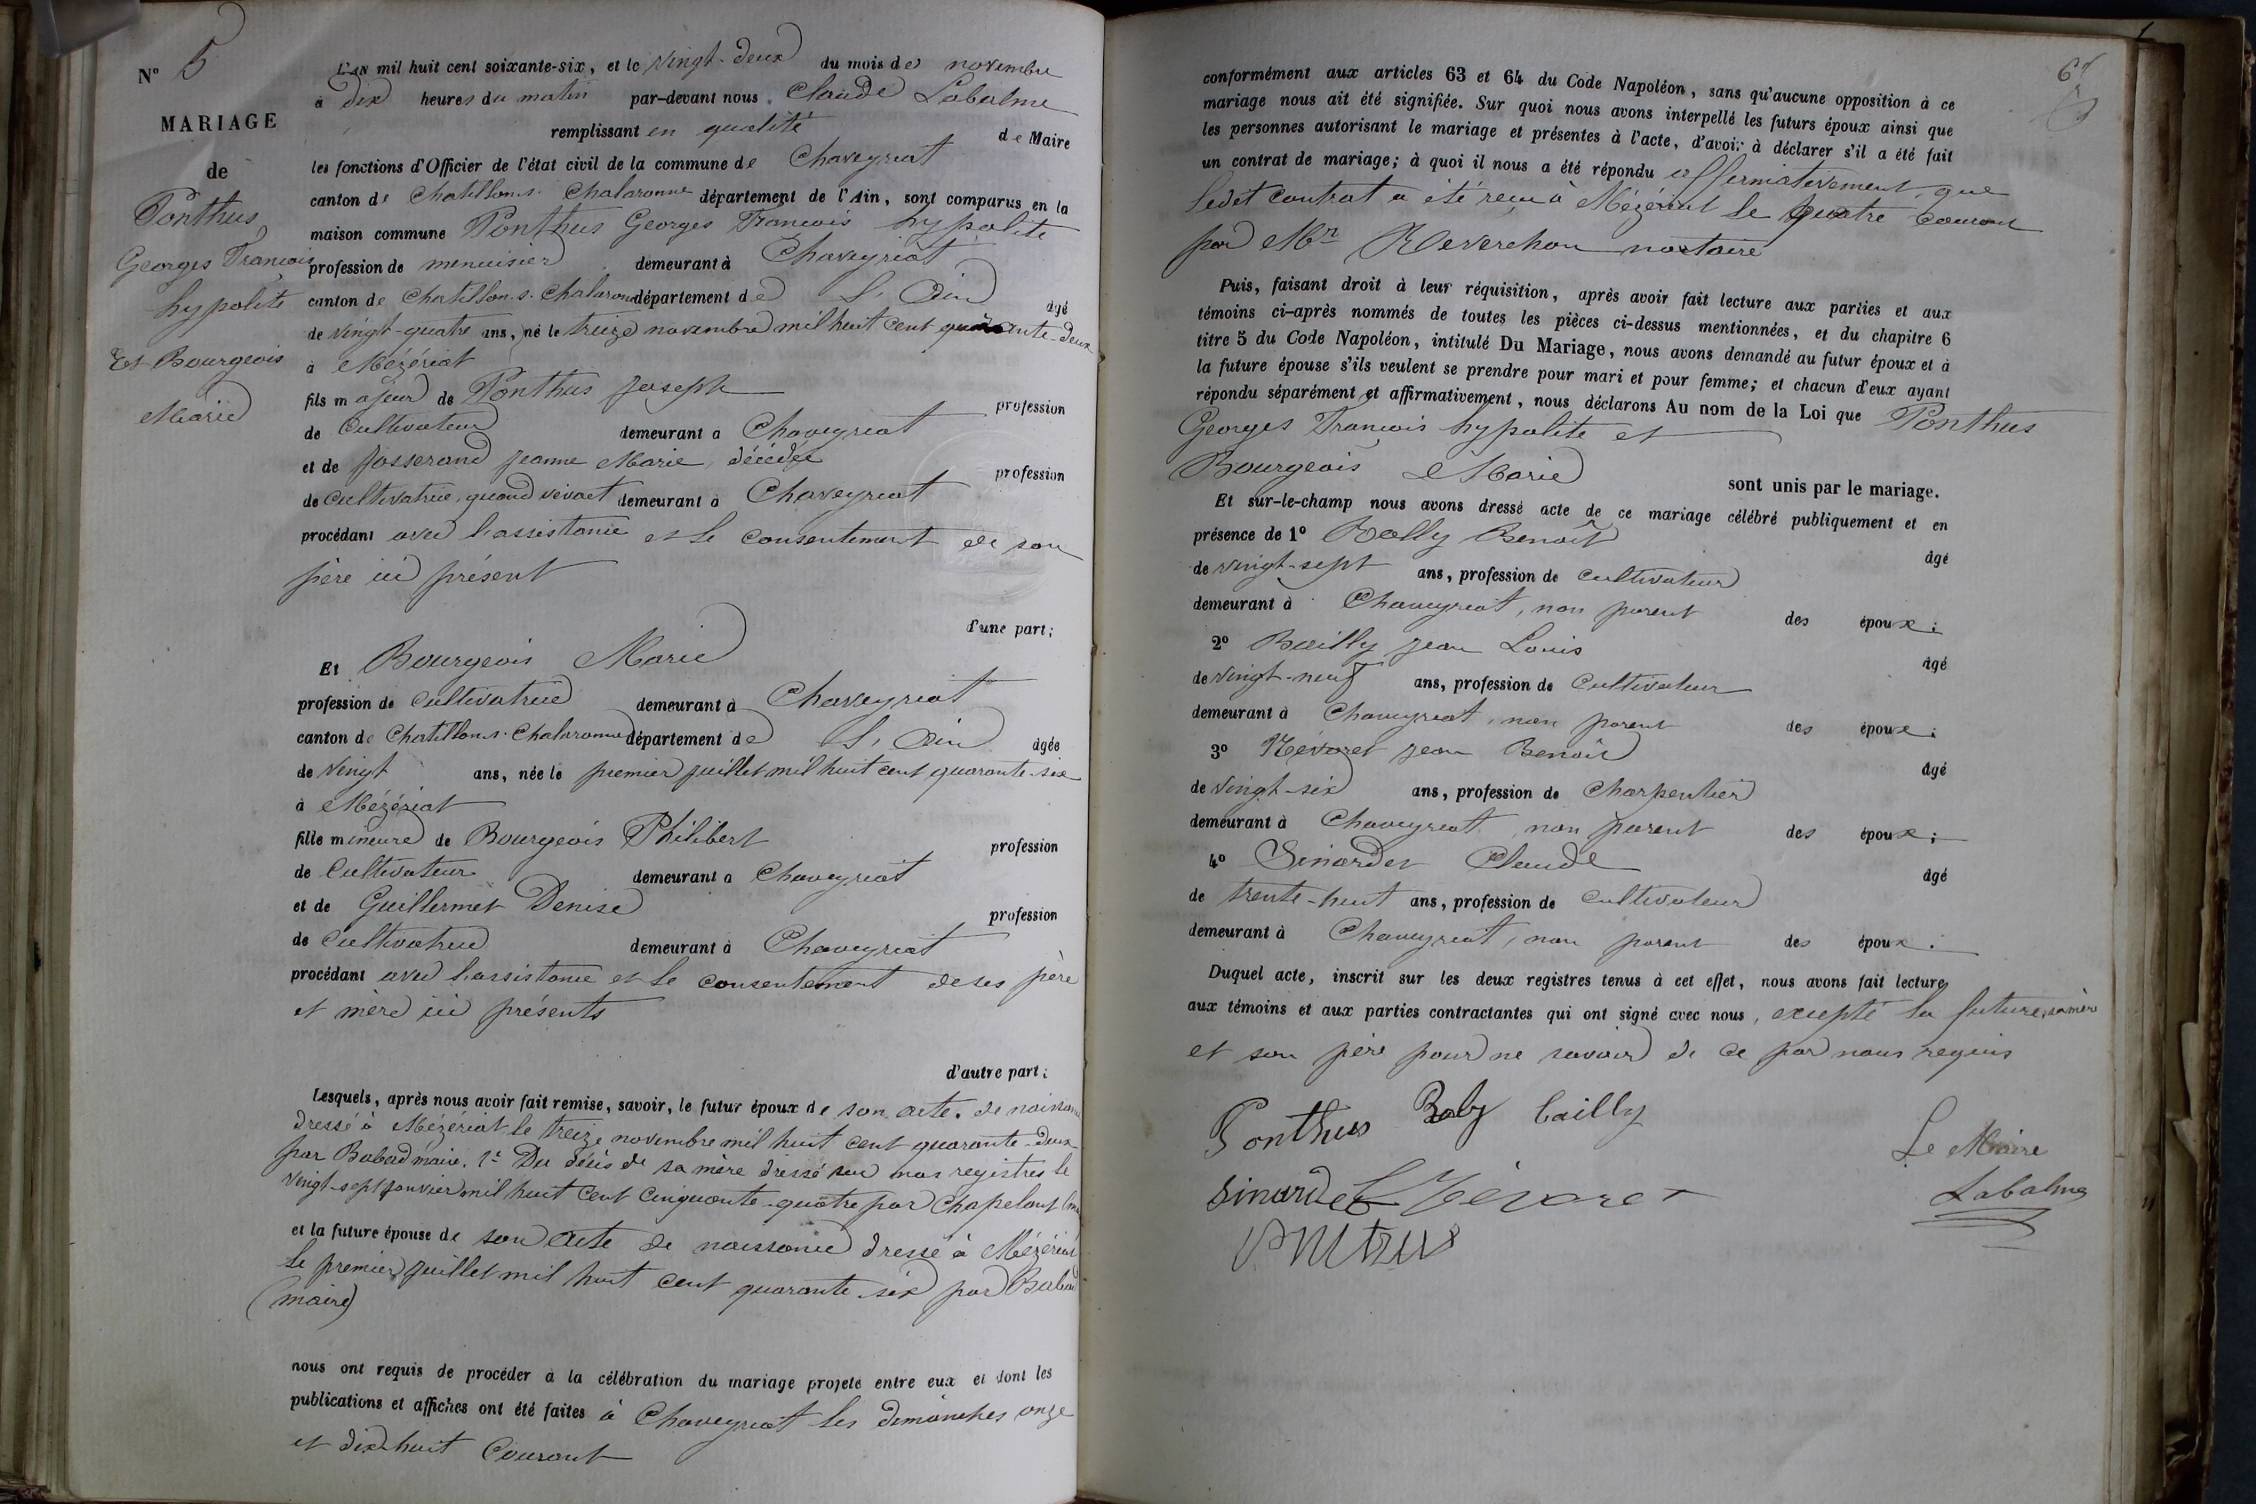 N° 5
MARIAGE
de
Ponthus
Georges François
hypolite
Et Bourgeois
Marie
L'AN mil huit cent soixante-six, et le vingt-deux du mois de novembre
à dix heures du matin par-devant nous Claude Labalme
remplissant en qualité de Maire
les fonctions d'Officier de l'état civil de la commune de Chaveyriat
canton de Chatillon s. Chalaronne département de l'Ain, sont comparus en la
maison commune Ponthus Georges François hypolite
profession de menuisier demeurant à Chaveyriat
canton de Chatillon. s. Chalaronne département de L'Ain âgé
de vingt-quatre ans, né le treize novembre mil huit cent quarante-deux
à Mézériat
fils majeur de Ponthus Joseph profession
de Cultivateur demeurant à Chaveyriat
et de Josserand Jeanne Marie, décédée profession
de cultivatrice, quand vivait demeurant à Chaveyriat
procédant avec l'assistance et le consentement de son
père ici présent
d'une part;
Et Bourgeois Marie
profession de cultivatrice demeurant à Chaveyriat
canton de Chatillon s. Chalaronne département de L'Ain âgée
de vingt ans, née le premier juillet mil huit cent quarante-six
à Mézériat
fille mineure de Bourgeois Philibert profession
de Cultivateur demeurant à Chaveyriat
et de Guillermet Denise profession
de Cultivatrice demeurant à Chaveyriat
procédant avec l'assistance et le consentement de ses père
et mère ici présents
d'autre part;
Lesquels, après nous avoir fait remise, savoir, le futur époux de son acte. de naissance
dressé à Mézériat le treize novembre mil huit cent quarante-deux
par Babad maire. Du décès de sa mère dressé sur nos registres le
vingt-sept janvier mil huit cent cinquante-quatre par Chapeland
et la future épouse de son acte de naissance dressé à Mézériat
le premier juillet mil huit cent quarante-six par Babad
(maire)
nous ont requis de procéder à la célébration du mariage projeté entre eux et dont les
publications et affiches ont été faites à Chaveyriat les dimanches onze
et dix-huit Courant
conformément aux articles 63 et 64 du Code Napoléon, sans qu'aucune opposition à ce
mariage nous ait été signifiée. Sur quoi nous avons interpellé les futurs époux ainsi que
les personnes autorisant le mariage et présentes à l'acte, d'avoir à déclarer s'il a été fait
un contrat de mariage; à quoi il nous a été répondu affirmativement que
ledit contrat a été reçu à Mézériat le quatre courant
par Mre Reverchon nostaire
Puis, faisant droit à leur réquisition, après avoir fait lecture aux parties et aux
témoins ci-après nommés de toutes les pièces ci-dessus mentionnées, et du chapitre 6
titre 5 du Code Napoléon, intitulé Du Mariage, nous avons demandé au futur époux et à
la future épouse s'ils veulent se prendre pour mari et pour femme; et chacun d'eux ayant
répondu séparément et affirmativement, nous déclarons Au nom de la Loi que Ponthus
Georges François hypolite et
Bourgeois Marie sont unis par le mariage.
Et sur-le-champ nous avons dressé acte de ce mariage célébré publiquement et en
présence de 1° Bolly Benoît âgé
de vingt-sept ans, profession de cultivateur
demeurant à Chaveyriat, non parent des époux;
2° Bailly Jean Louis âgé
de vingt-neuf ans, profession de Cultivateur
demeurant à Chaveyriat, non parent des époux;
3° Névoret Jean Benoît âgé
de vingt-six ans, profession de Charpentier
demeurant à Chaveyriat non parent des époux;
4° Sinardet Claude âgé
de trente-huit ans, profession de Cultivateur
demeurant à Chaveyriat, non parent des époux.
Duquel acte, inscrit sur les deux registres tenus à cet effet, nous avons fait lecture
aux témoins et aux parties contractantes qui ont signé avec nous, excepté la future, sa mère
et son père pour ne savoir de ce par nous requis
Ponthus Boly bailly
Le Maire
Sinardet Névoret
Labalme